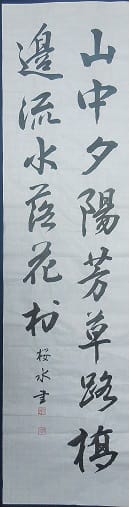 山中夕陽芳草路橋
邊流水落花村
桜水書